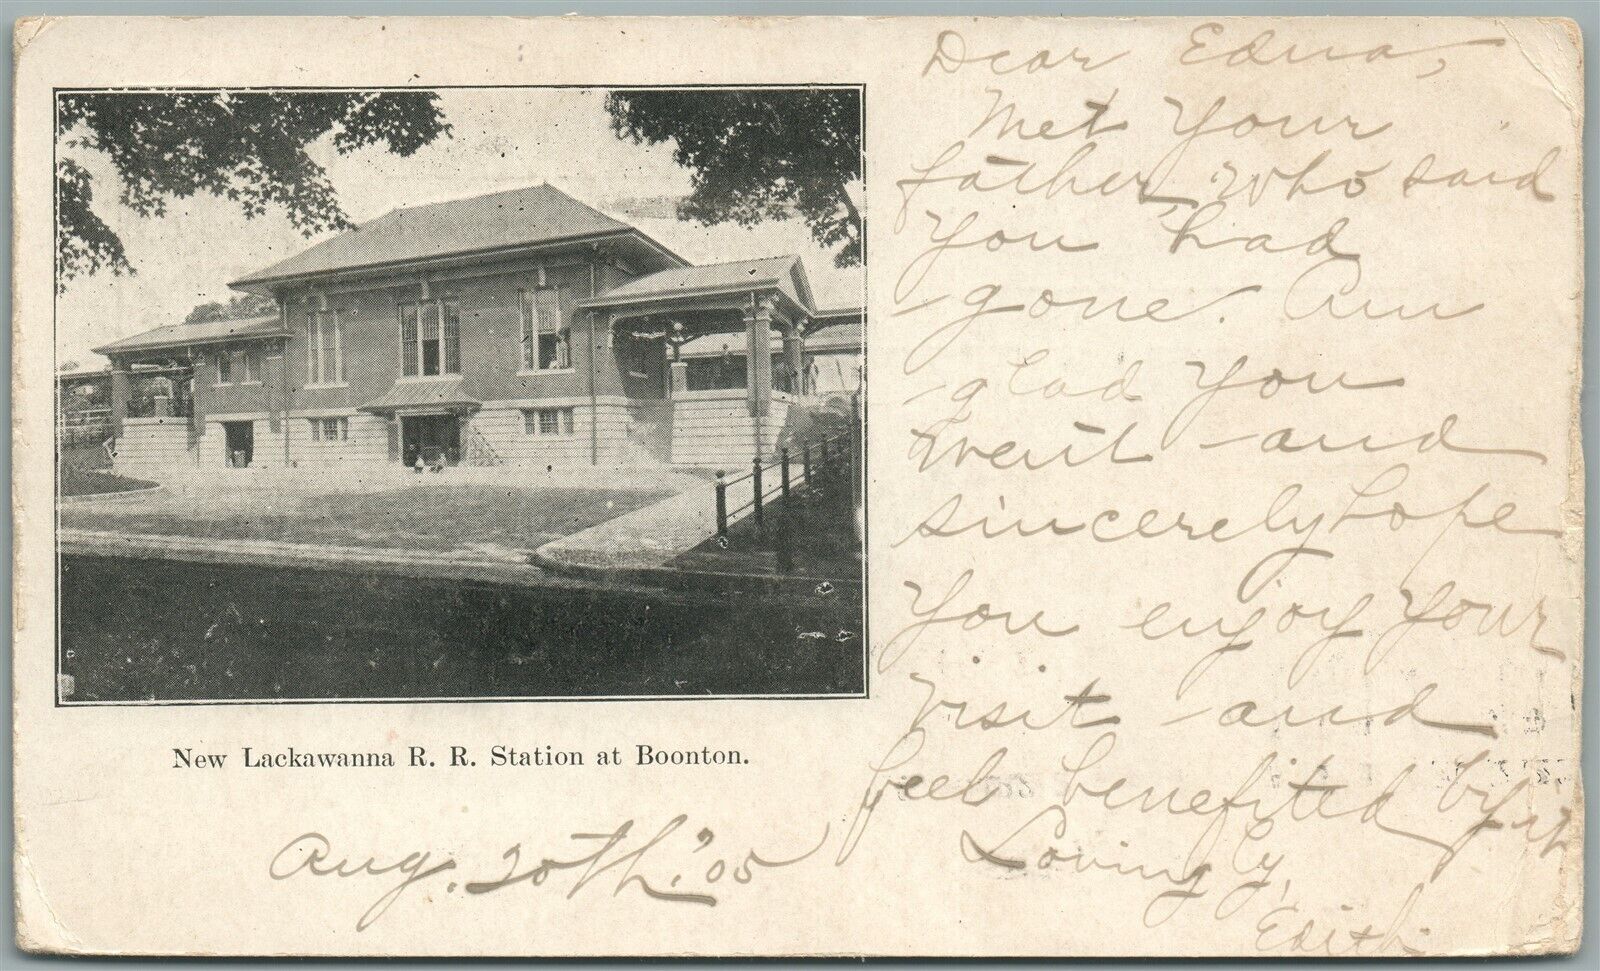 Dear Edna,
Met your
father, who said
you had
gone. Am
glad you
went and
sincerely hope
you enjoy your
visit and
feel benefited by it
Lovingly,
Edith.
New Lackawanna R. R. Station at Boonton.
Aug. 20th. '05